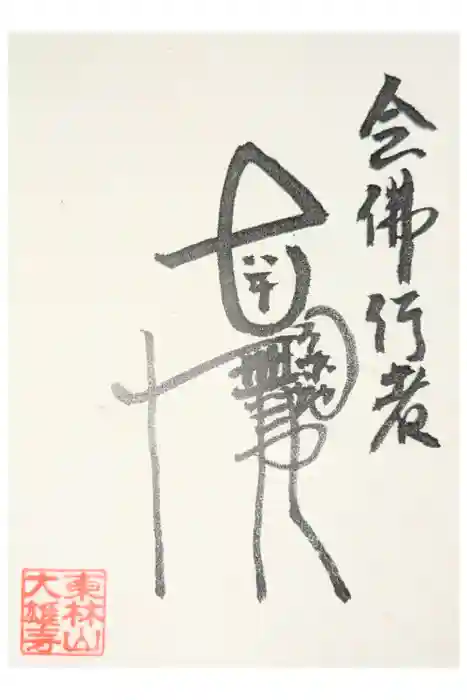 会佛行者
南無阿弥陀仏
東林山
大雄寺